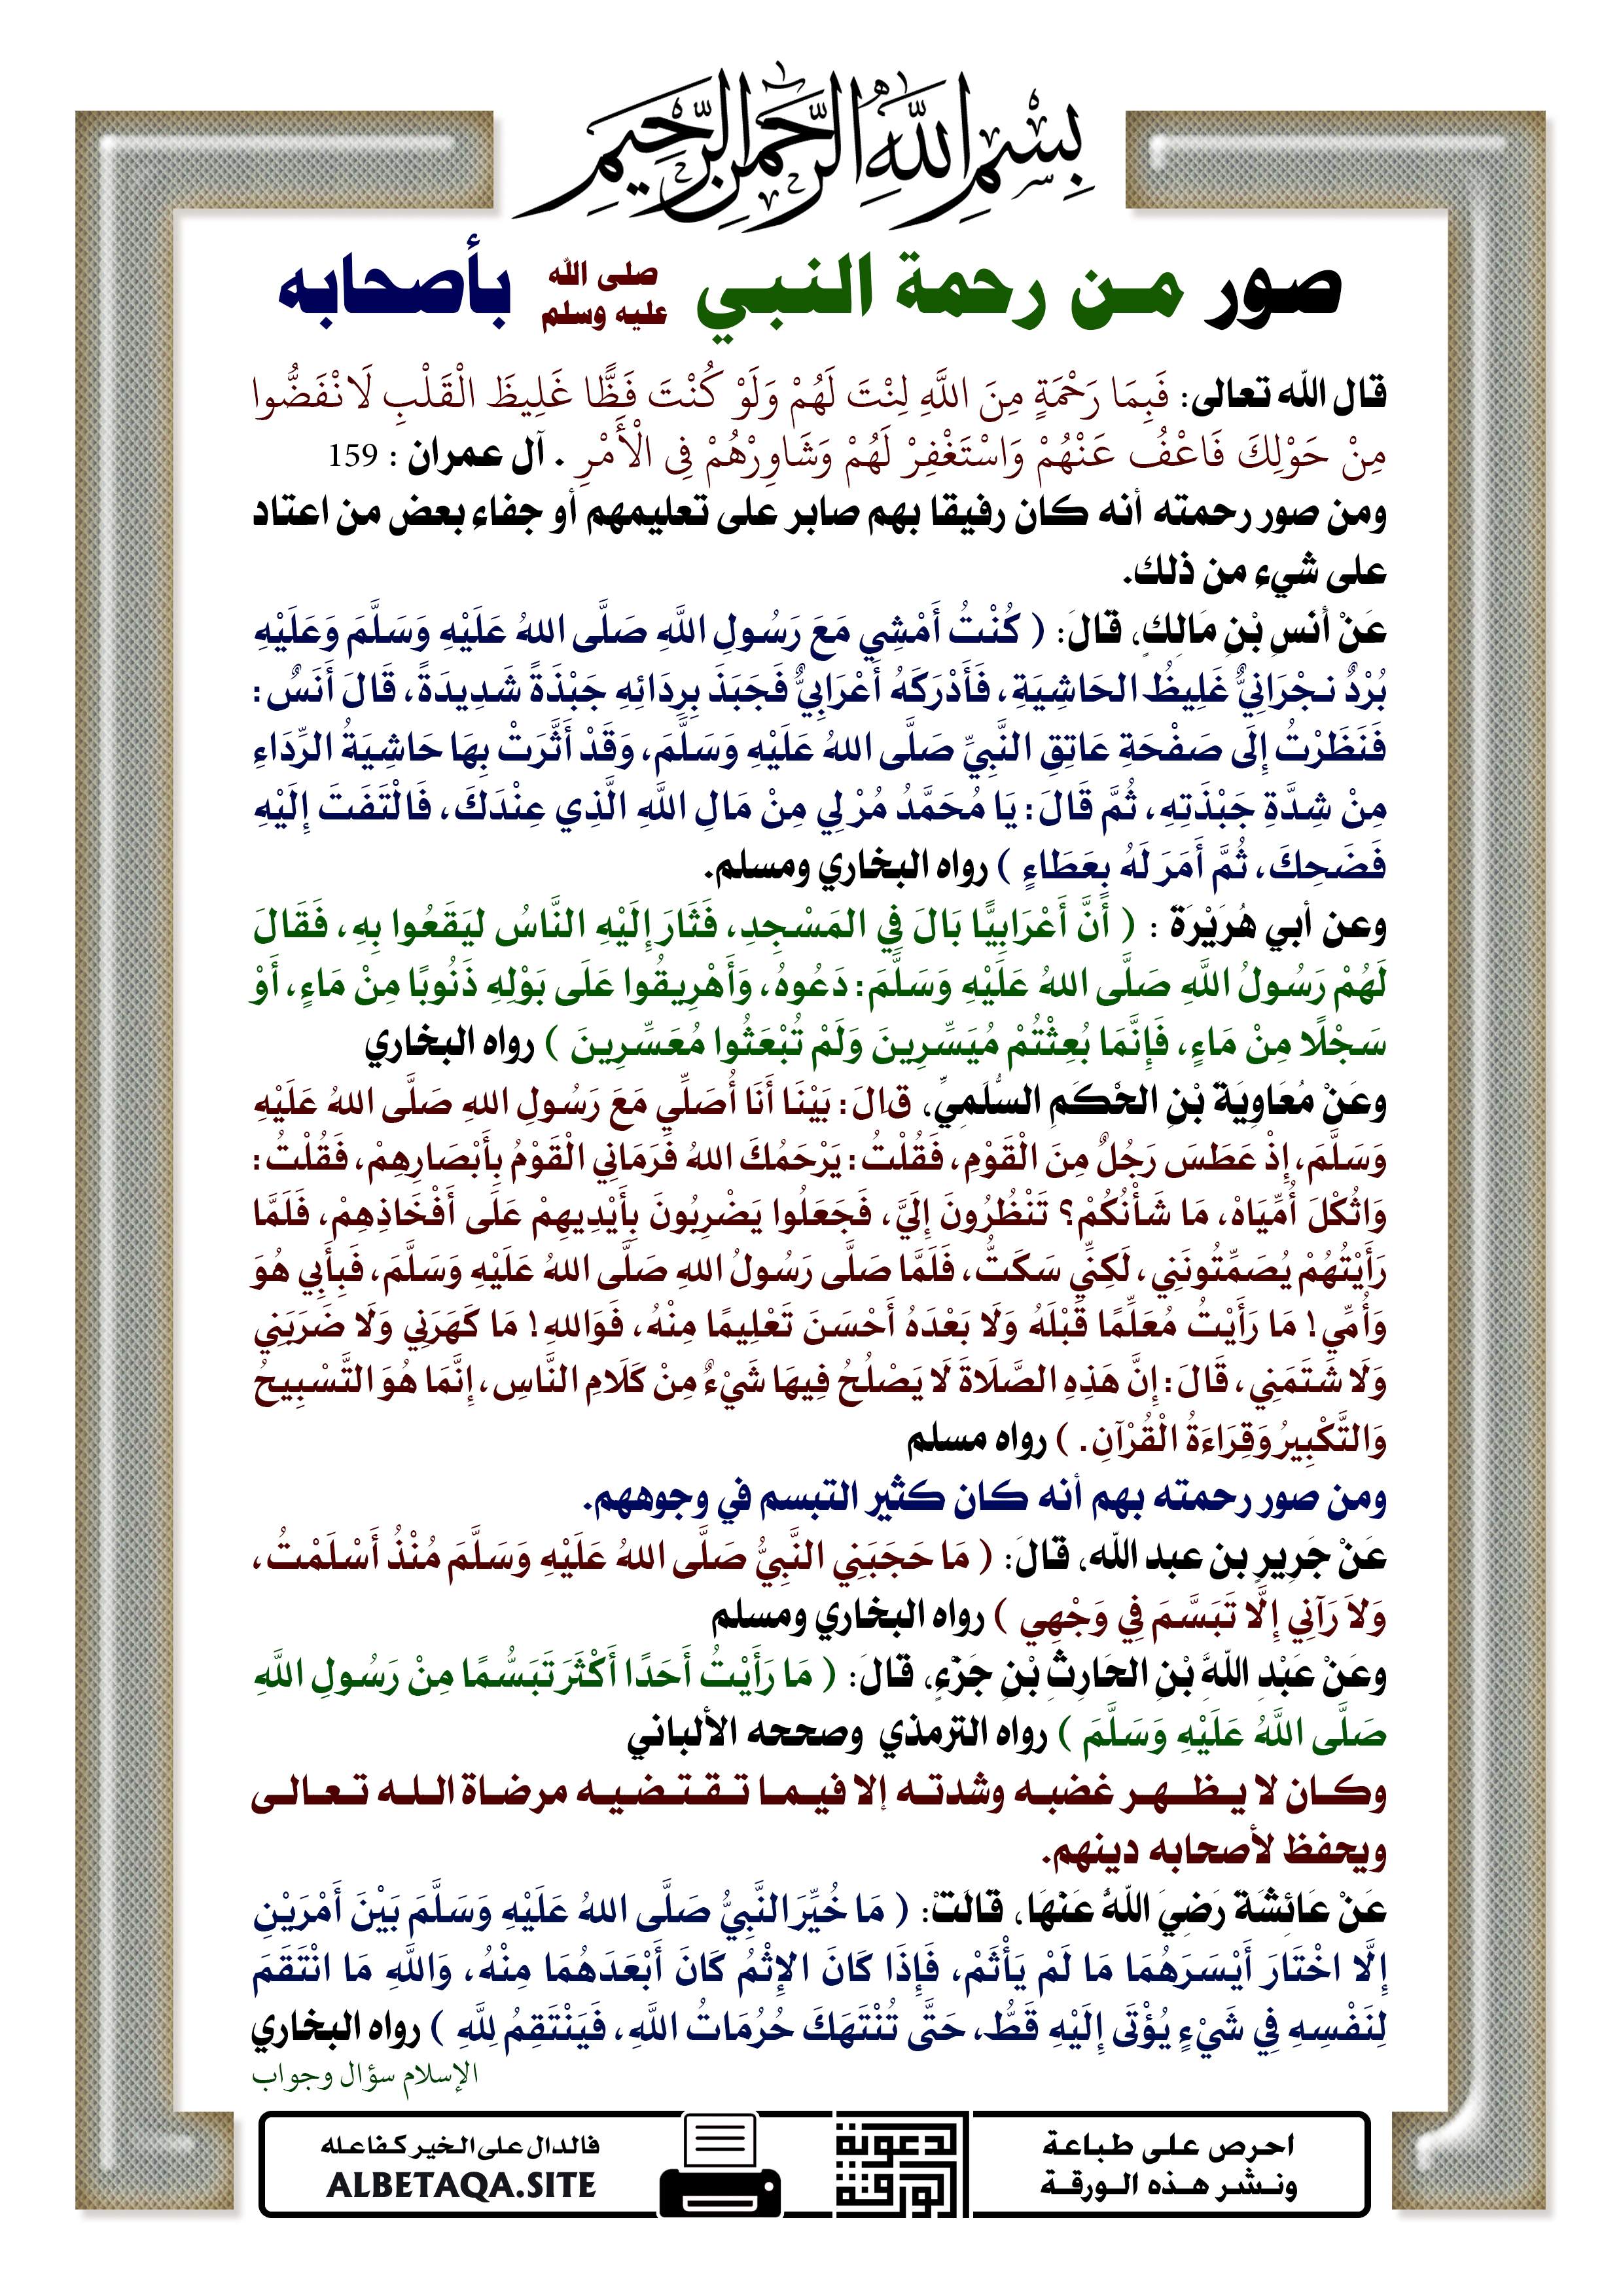 بِسْمِ اللَّهِ الرَّحْمَٰنِ الرَّحِيمِ
صور من رحمة النبي صلى الله عليه وسلم بأصحابه
قال الله تعالى: فَبِمَا رَحْمَةٍ مِنَ اللَّهِ لِنْتَ لَهُمْ وَلَوْ كُنْتَ فَظًّا غَلِيظَ الْقَلْبِ لَانْفَضُّوا
مِنْ حَوْلِكَ فَاعْفُ عَنْهُمْ وَاسْتَغْفِرْ لَهُمْ وَشَاوِرْهُمْ فِي الْأَمْرِ . آل عمران : 159
ومن صور رحمته أنه كان رفيقا بهم صابر على تعليمهم أو جفاء بعض من اعتاد
على شيء من ذلك.
عَنْ أَنَسِ بْنِ مَالِكٍ، قَالَ: ( كُنْتُ أَمْشِي مَعَ رَسُولِ اللَّهِ صَلَّى اللهُ عَلَيْهِ وَسَلَّمَ وَعَلَيْهِ
بُرْدٌ نجْرَانِيٌّ غَلِيظُ الحَاشِيَةِ، فَأَدْرَكَهُ أَعْرَابِيٌّ فَجَبَذَ بِرِدَائِهِ جَبْذَةً شَدِيدَةً، قَالَ أَنَسٌ:
فَنَظَرْتُ إِلَى صَفْحَةِ عَاتِقِ النَّبِيِّ صَلَّى اللهُ عَلَيْهِ وَسَلَّمَ، وَقَدْ أَثَّرَتْ بِهَا حَاشِيَةُ الرِّدَاءِ
مِنْ شِدَّةِ جَبْذَتِهِ، ثُمَّ قَالَ: يَا مُحَمَّدُ مُرْ لِي مِنْ مَالِ اللَّهِ الَّذِي عِنْدَكَ، فَالْتَفَتَ إِلَيْهِ
فَضَحِكَ، ثُمَّ أَمَرَ لَهُ بِعَطَاءٍ ) رواه البخاري ومسلم.
وعن أبي هُرَيْرَة : ( أَنَّ أَعْرَابِيًّا بَالَ فِي المَسْجِدِ، فَثَارَ إِلَيْهِ النَّاسُ ليَقَعُوا بِهِ، فَقَالَ
لَهُمْ رَسُولُ اللَّهِ صَلَّى اللهُ عَلَيْهِ وَسَلَّمَ: دَعُوهُ، وَأَهْرِيقُوا عَلَى بَوْلِهِ ذَنُوبًا مِنْ مَاءٍ، أَوْ
سَجْلًا مِنْ مَاءٍ، فَإِنَّمَا بُعِثْتُمْ مُيَسِّرِينَ وَلَمْ تُبْعَثُوا مُعَسِّرِينَ ) رواه البخاري
وعَنْ مُعَاوِيَة بْنِ الحْكَمِ السُّلَمِيِّ، قالَ: بَيْنَا أَنَا أُصَلِّي مَعَ رَسُولِ اللهِ صَلَّى اللهُ عَلَيْهِ
وَسَلَّمَ، إِذْ عَطَسَ رَجُلٌ مِنَ الْقَوْمِ، فَقُلْتُ: يَرْحَمُكَ اللهُ فَرَمَانِي الْقَوْمُ بِأَبْصَارِهِمْ، فَقُلْتُ:
وَاثُكْلَ أُمِّيَاهْ، مَا شَأْنُكُمْ؟ تَنْظُرُونَ إِلَيَّ، فَجَعَلُوا يَضْرِبُونَ بِأَيْدِيهِمْ عَلَى أَفْخَاذِهِمْ، فَلَمَّا
رَأَيْتُهُمْ يُصَمِّتُونَنِي، لَكِنِّي سَكَتُّ، فَلَمَّا صَلَّى رَسُولُ اللهِ صَلَّى اللهُ عَلَيْهِ وَسَلَّمَ، فَبِأَبِي هُوَ
وَأُمِّي! مَا رَأَيْتُ مُعَلِّمًا قَبْلَهُ وَلَا بَعْدَهُ أَحْسَنَ تَعْلِيمًا مِنْهُ، فَوَاللهِ! مَا كَهَرَنِي وَلَا ضَرَبَنِي
وَلَا شَتَمَنِي، قَالَ: إِنَّ هَذِهِ الصَّلَاةَ لَا يَصْلُحُ فِيهَا شَيْءٌ مِنْ كَلَامِ النَّاسِ، إِنَّمَا هُوَ التَّسْبِيحُ
وَالتَّكْبِيرُ وَقِرَاءَةُ الْقُرْآنِ. ) رواه مسلم
ومن صور رحمته بهم أنه كان كثير التبسم في وجوههم.
عَنْ جَرِيرٍ بن عبد الله، قالَ: ( مَا حَجَبَنِي النَّبِيُّ صَلَّى اللهُ عَلَيْهِ وَسَلَّمَ مُنْذُ أَسْلَمْتُ،
وَلاَ رَآنِي إِلَّا تَبَسَّمَ فِي وَجْهِي ) رواه البخاري ومسلم
وعَنْ عَبْدِ اللَّهِ بْنِ الحَارِثِ بْنِ جَزْءٍ، قَالَ: ( مَا رَأَيْتُ أَحَدًا أَكْثَرَ تَبَسُّمًا مِنْ رَسُولِ اللَّهِ
صَلَّى اللَّهُ عَلَيْهِ وَسَلَّمَ ) رواه الترمذي وصححه الألباني
وكان لا يظهر غضبه وشدته إلا فيما تقتضيه مرضاة الله تعالى
ويحفظ لأصحابه دينهم.
عَنْ عَائِشَة رَضِيَ اللَّهُ عَنْهَا، قالَتْ: ( مَا خُيِّرَ النَّبِيُّ صَلَّى اللهُ عَلَيْهِ وَسَلَّمَ بَيْنَ أَمْرَيْنِ
إِلَّا اخْتَارَ أَيْسَرَهُمَا مَا لَمْ يَأْثَمْ، فَإِذَا كَانَ الإِثْمُ كَانَ أَبْعَدَهُمَا مِنْهُ، وَاللَّهِ مَا انْتَقَمَ
لِنَفْسِهِ فِي شَيْءٍ يُؤْتَى إِلَيْهِ قَطُّ، حَتَّى تُنْتَهَكَ حُرُمَاتُ اللَّهِ، فَيَنْتَقِمُ لِلَّهِ ) رواه البخاري
الإسلام سؤال وجواب
احرص على طباعة
ونشر هذه الورقة
الورقة
الدعوية
فالدال على الخير كفاعله
ALBETAQA.SITE